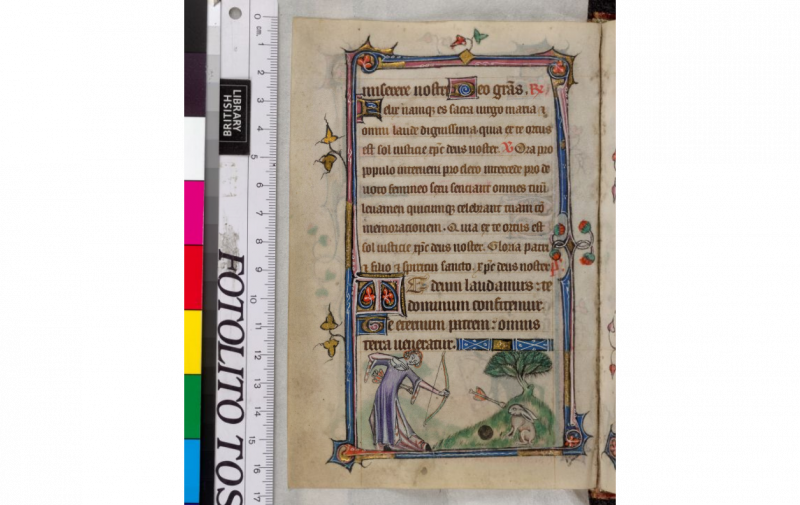 miserere nostri Deo grãs. R
Felix namq; es sacra uirgo maria ⁊
omni laude dignissima quia ex te ortus
est sol iusticie xp̃c deus noster. V Ora pro
populo interueni pro clero intercede pro de
uoto femineo sexu senciant omnes tuũ
leuamen quicumq; celebrant tuam cõ
memoracionem. Quia ex te ortus est
sol iusticie xp̃c deus noster. Gloria patri
⁊ filio ⁊ spiritui sancto. xp̃c deus noster
Te deum laudamus: te
dominum confitemur.
Te eternum patrem: omnis
terra ueneratur.
BRITISH
LIBRARY
FOTOLITO TOS
0 cm. 1 2 3 4 5 6 7 8 9 10 11 12 13 14 15 16 17